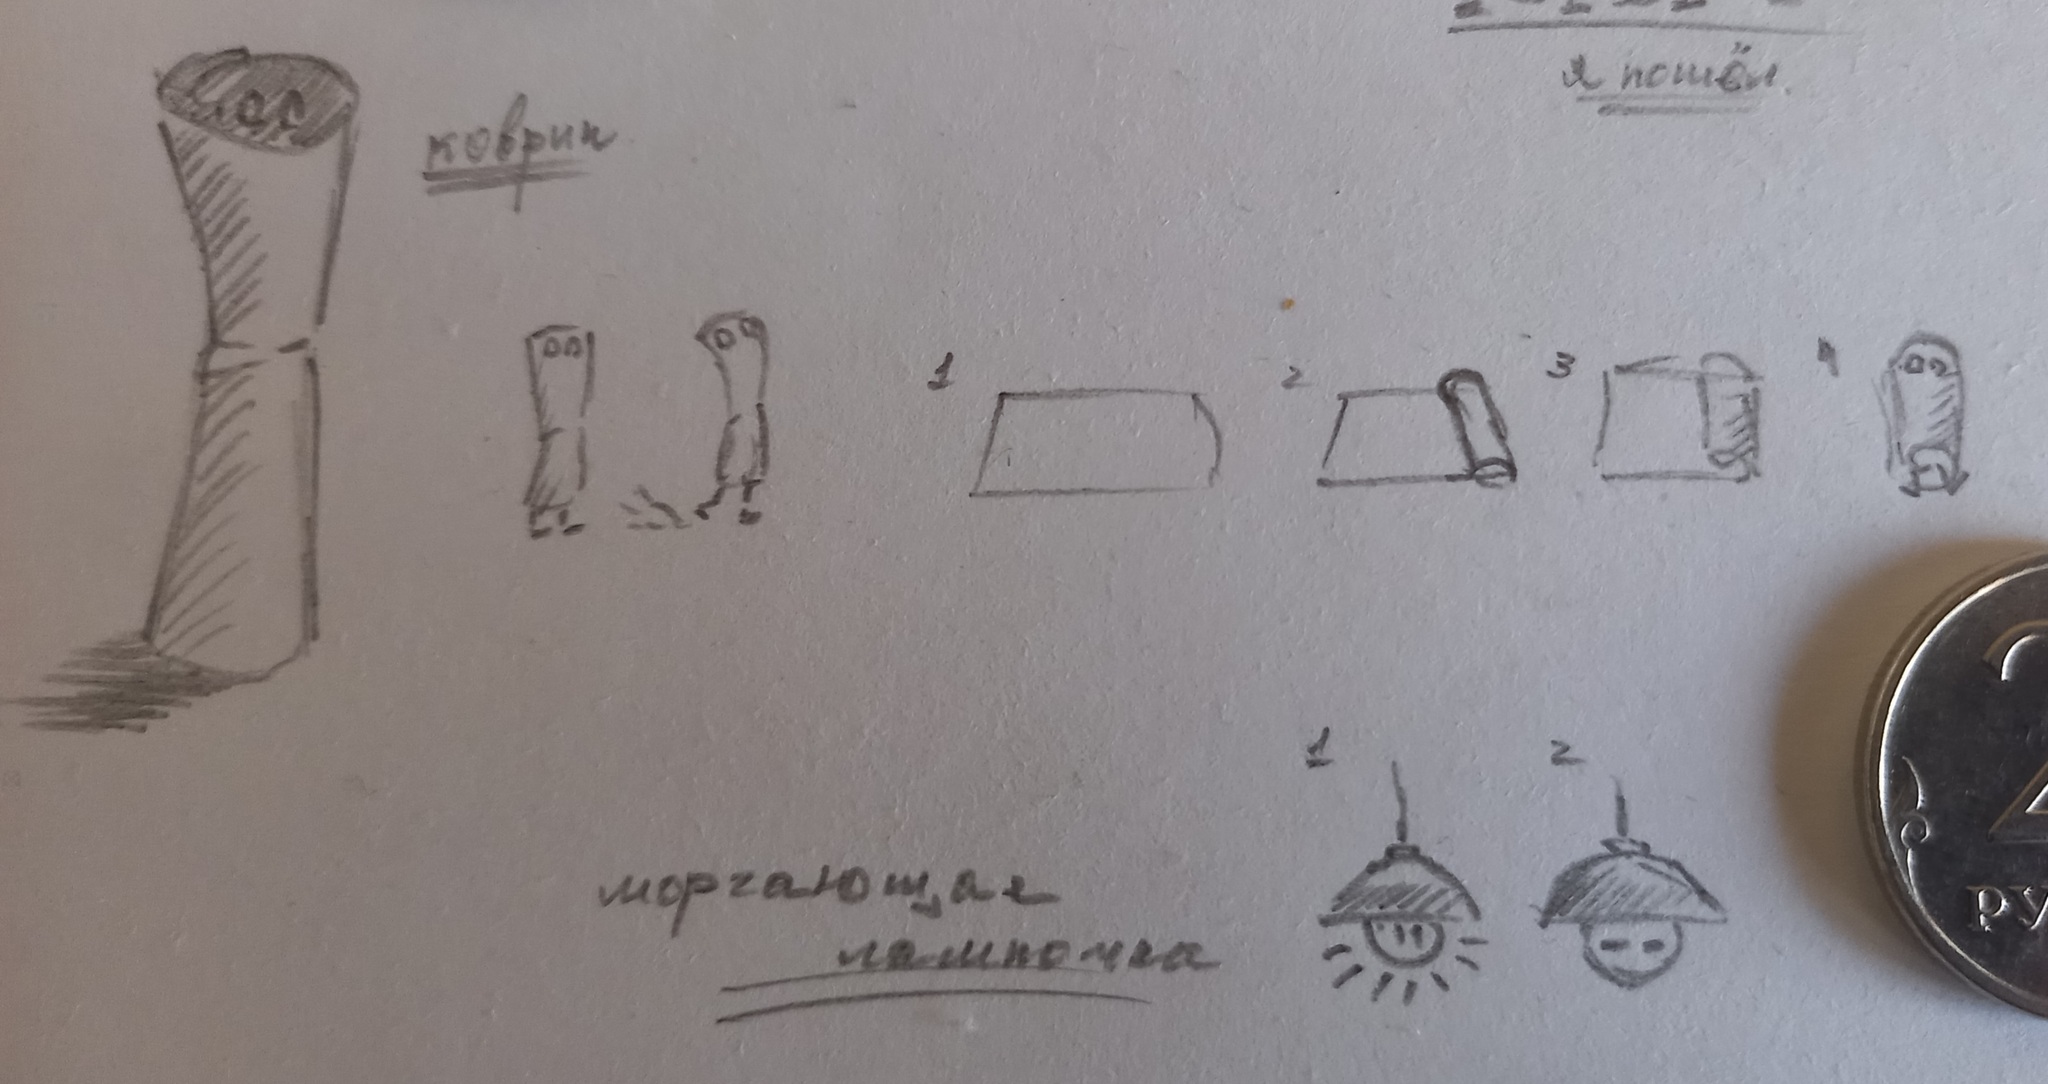 я пошёл.
коврик
1 2 3 4
1 2
моргающая
лампочка
2
РУ